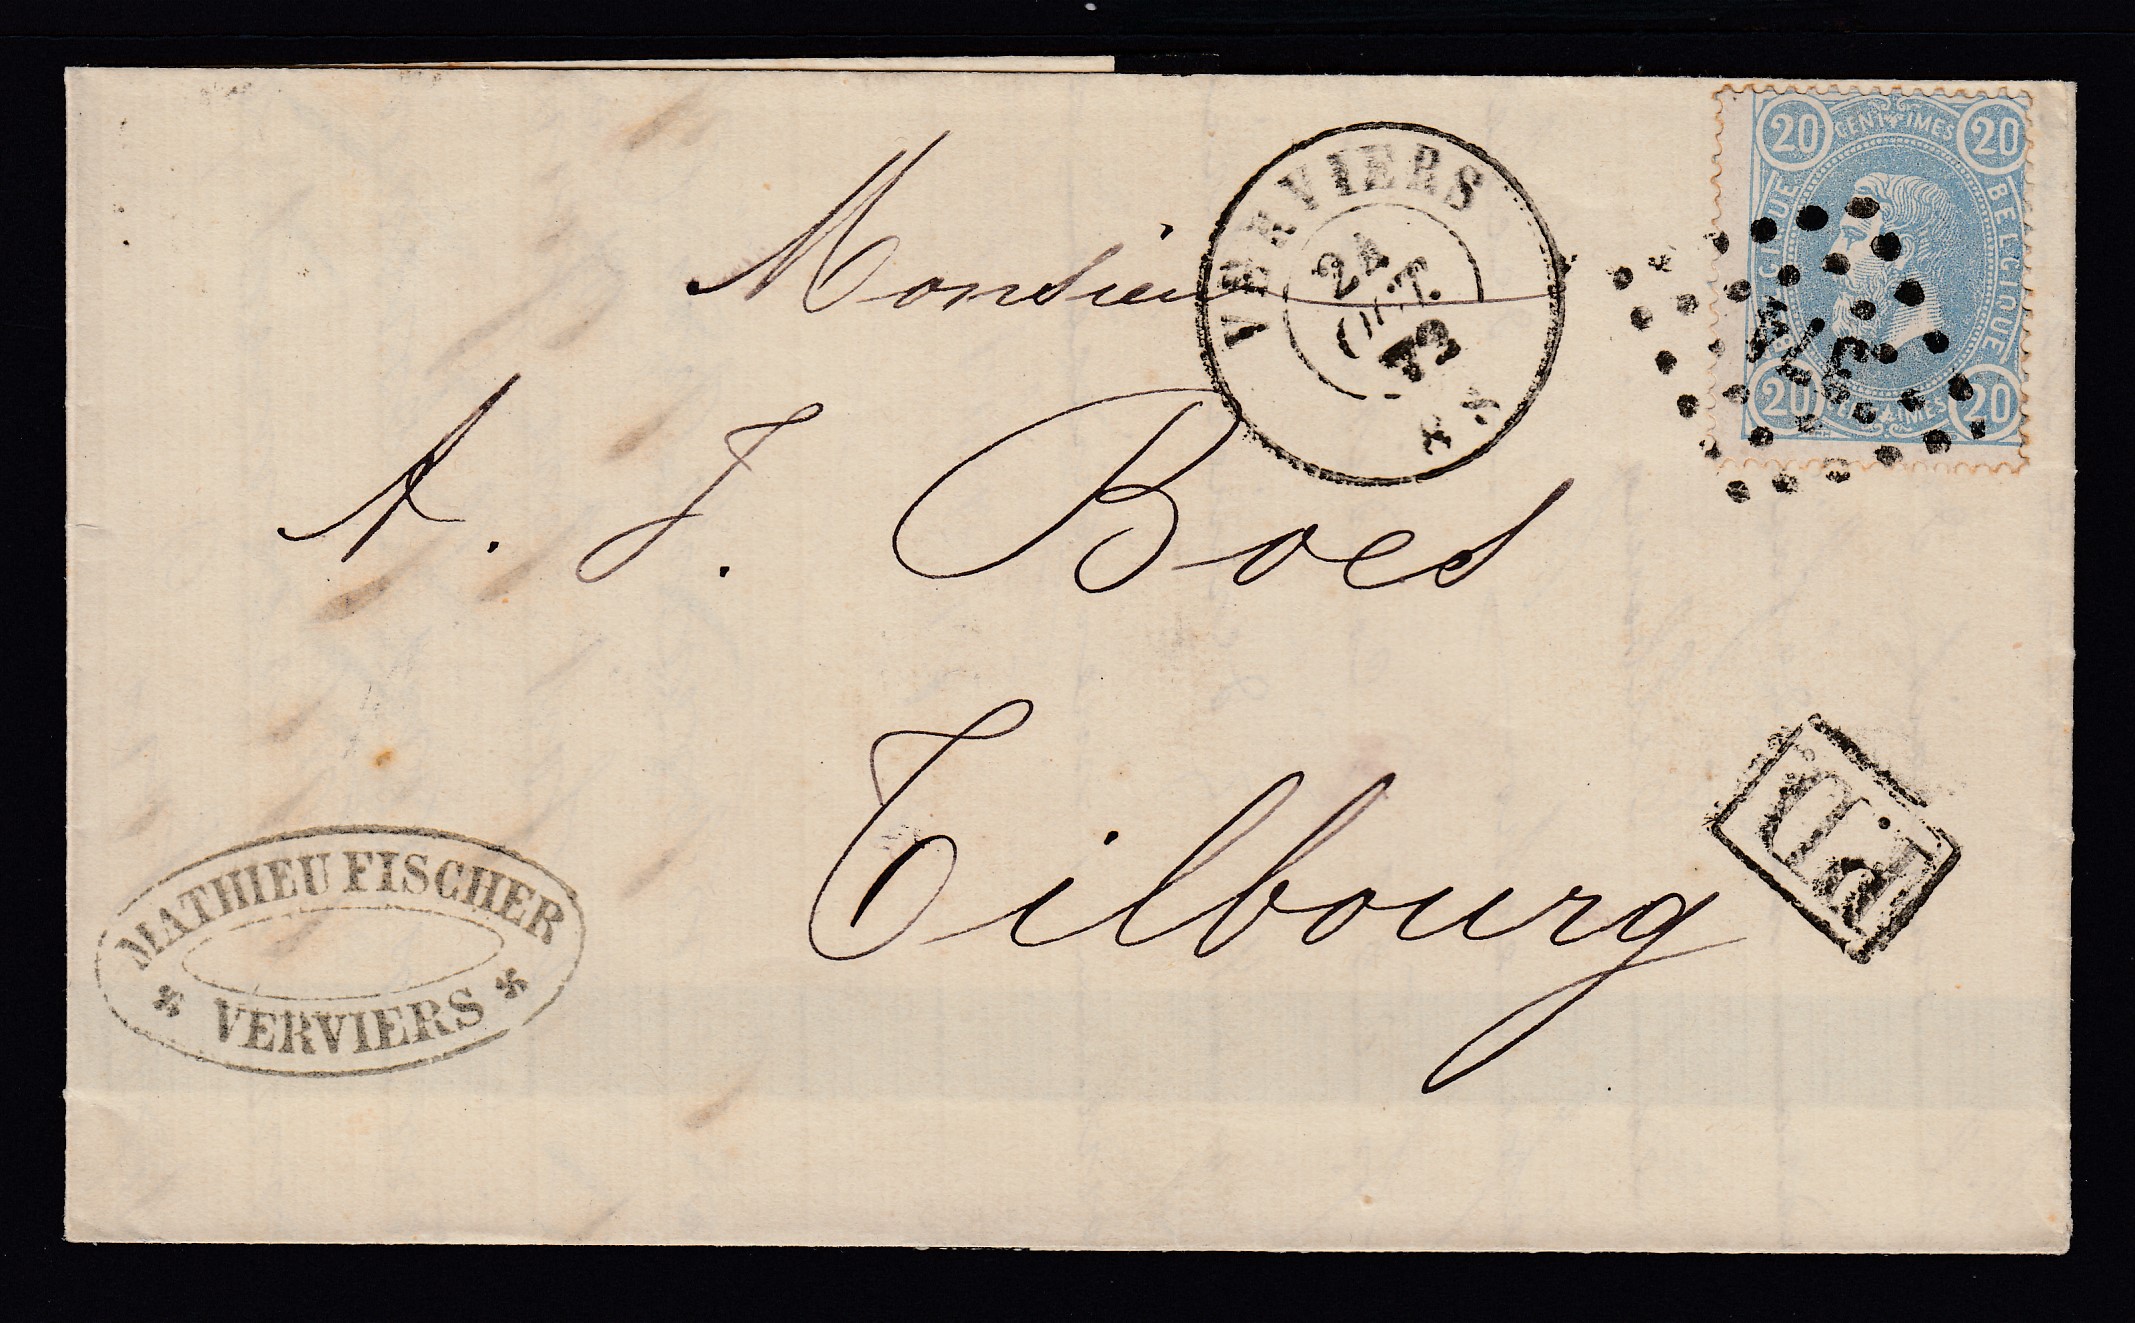 20 CENTIMES 20
BELGIQUE
BELGIQUE
20 CENTIMES 20
VERVIERS
24
OCT.
73
374
Monsieur
A. J. Boes
Tilbourg
P.D.
MATHIEU FISCHER
* VERVIERS *